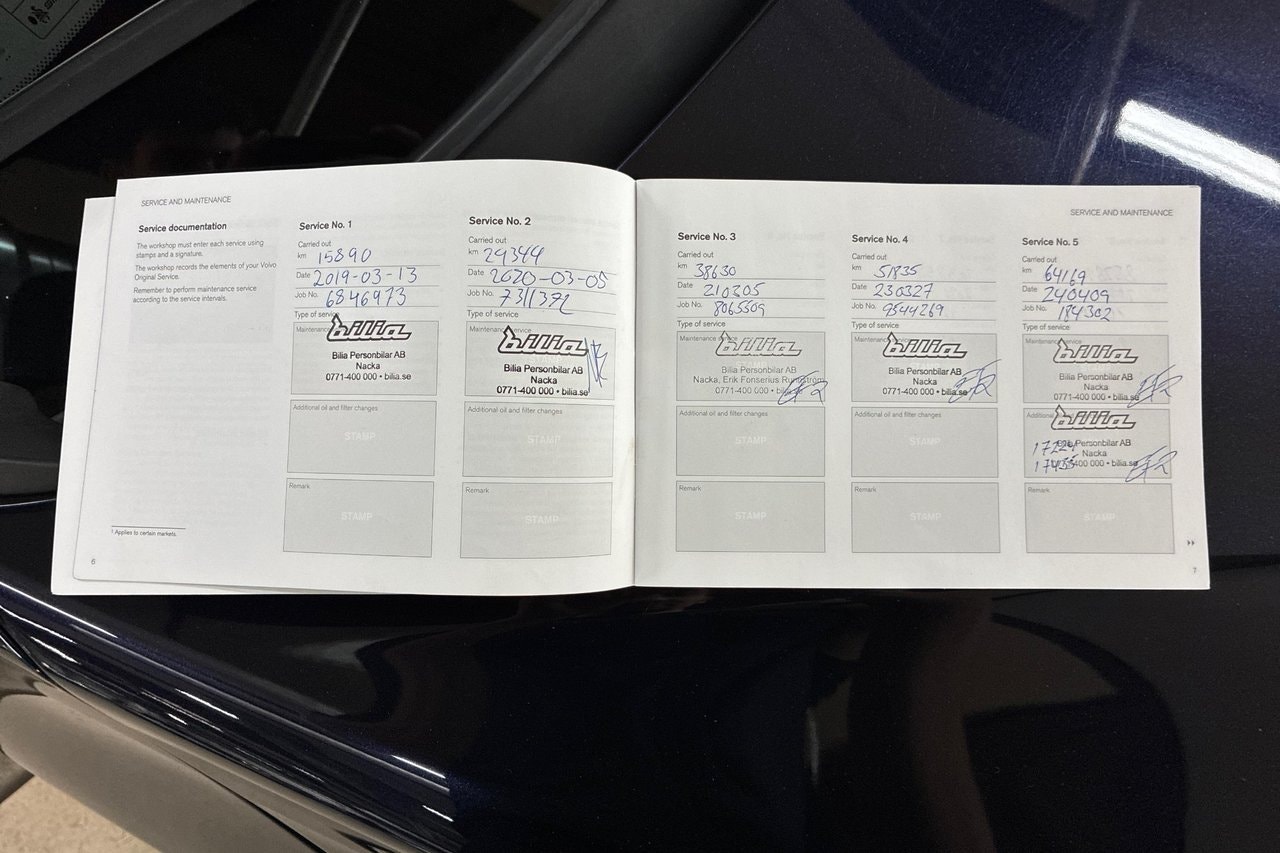 SERVICE AND MAINTENANCE
Service documentation
The workshop must enter each service using
stamps and a signature.
The workshop records the elements of your Volvo
Original Service.
Remember to perform maintenance service
according to the service intervals.
1 Applies to certain markets.
6
Service No. 1
Carried out
km 15890
Date 2019-03-13
Job No. 6846973
Type of service
Maintenance service
bilia
Bilia Personbilar AB
Nacka
0771-400 000 • bilia.se
Additional oil and filter changes
STAMP
Remark
STAMP
Service No. 2
Carried out
km 29344
Date 2020-03-05
Job No.
Type of service
Maintenance service
bilia
Bilia Personbilar AB
Nacka
0771-400 000 • bilia.se
Additional oil and filter changes
STAMP
Remark
STAMP
SERVICE AND MAINTENANCE
Service No. 3
Carried out
km 38630
Date 210305
Job No. 8065509
Type of service
Maintenance service
bilia
Bilia Personbilar AB
Nacka, Erik Fonserius
0771-400 000 • bilia.se
Additional oil and filter changes
STAMP
Remark
STAMP
Service No. 4
Carried out
km 51835
Date 230327
Job No. 9544269
Type of service
Maintenance service
bilia
Bilia Personbilar AB
Nacka
0771-400 000 • bilia.se
Additional oil and filter changes
STAMP
Remark
STAMP
Service No. 5
Carried out
km 64169
Date 240409
Job No. 184302
Type of service
Maintenance service
bilia
Bilia Personbilar AB
Nacka
0771-400 000 • bilia.se
Additional
bilia
Bilia Personbilar AB
Nacka
0771-400 000 • bilia.se
Remark
STAMP
7